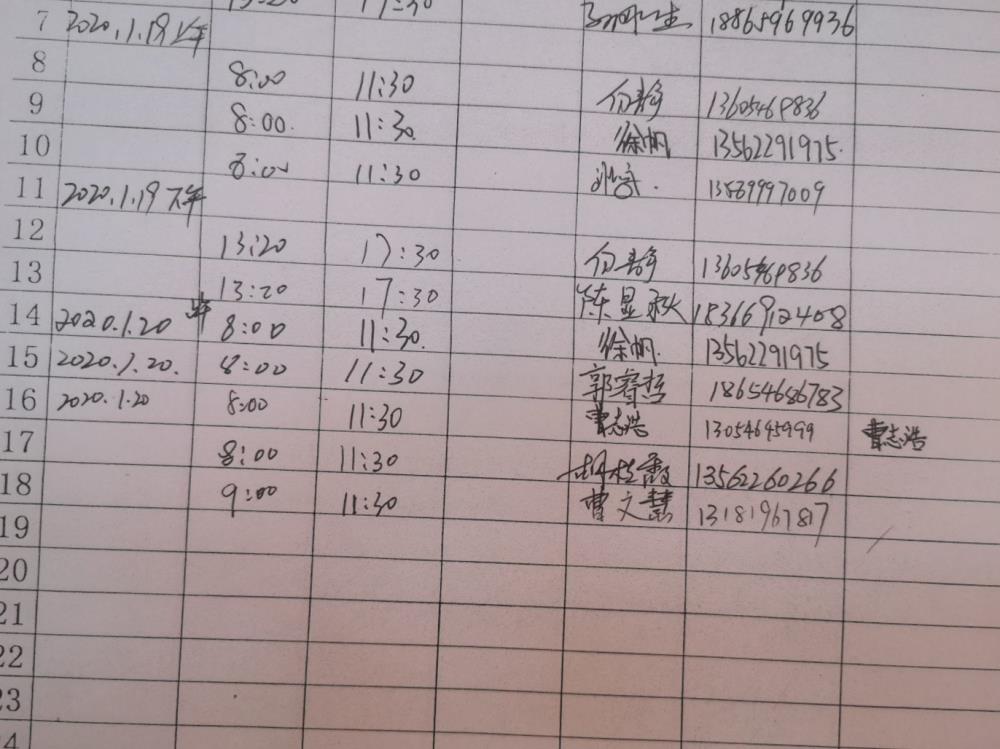 7 2020.1.19上午 17:30 18865969936
8 8:00 11:30 付静 13605469836
9 8:00. 11:30 徐帆 13562291975.
10 8:00 11:30 13589997009
11 2020.1.19下午
12 13:20 17:30 付静 13605469836
13 13:20 17:30 陈显秋 18366912408
14 2020.1.20 8:00 11:30. 徐帆. 13562291975
15 2020.1.20. 8:00 11:30 郭睿哲 18654686783
16 2020.1.20 8:00 11:30 曹志浩 13054645999 曹志浩
17 8:00 11:30 胡桂霞 13562260266
18 9:00 11:30 曹文慧 13181967817
19
20
21
22
23
24